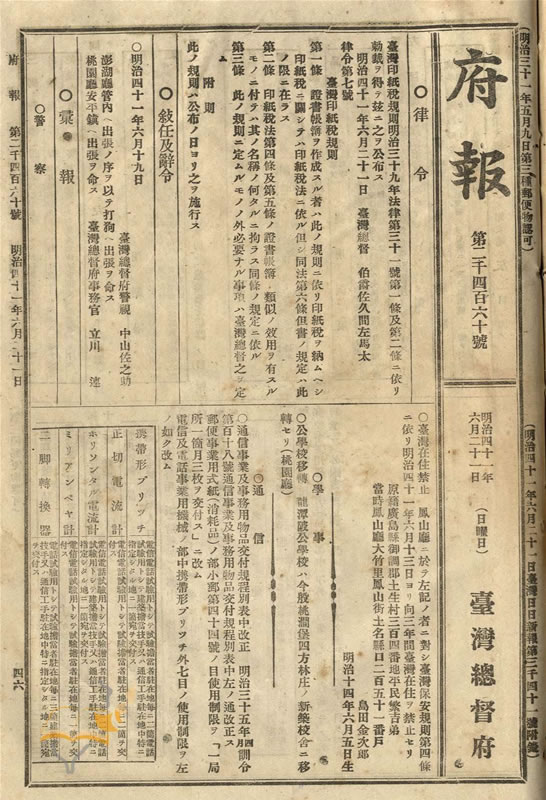 (明治三十一年五月九日第三種郵便物認可)
(明治四十一年六月二十一日臺灣日日新報第三千四十一號附錄)
府報
第二千四百六十號
明治四十一年
六月二十一日
(日曜日)
臺灣總督府
○律令
臺灣印紙稅規則明治三十九年法律第三十一號第一條及第二條ニ依リ
勅裁ヲ得茲ニ之ヲ公布ス
明治四十一年六月二十一日 臺灣總督 伯爵佐久間左馬太
律令第七號
臺灣印紙稅規則
第一條 證書帳簿ヲ作成スル者ハ此ノ規則ニ依リ印紙稅ヲ納ムヘシ
印紙稅ニ關シテハ印紙稅法ニ依ル但シ同法第六條但書ノ規定ハ此
ノ限ニ在ラス
第二條 印紙稅法第四條及第五條ノ證書帳簿ニ類似ノ效用ヲ有スル
モノニ付テハ其ノ名稱ノ何タルニ拘ラス同條ノ規定ニ依ル
第三條 此ノ規則ニ定ムルモノノ外必要ナル事項ハ臺灣總督之ヲ定
ム
附則
此ノ規則ハ公布ノ日ヨリ之ヲ施行ス
○敍任及辭令
○明治四十一年六月十九日
臺灣總督府警視 中山佐之助
澎湖廳管內ヘ出張ノ序ヲ以テ打狗ヘ出張ヲ命ス
臺灣總督府事務官 立川 連
桃園廳安平鎭ヘ出張ヲ命ス
○彙報
○警察
○臺灣在住禁止 鳳山廳ニ於テ左記ノ者ニ對シ臺灣保安規則第四條
ニ依リ明治四十一年六月十三日ヨリ向三年間臺灣在住ヲ禁止セリ
原籍廣島縣御調郡土生村三百四番地平民繁吉弟
當時鳳山廳大竹里鳳山街土名縣口二百五十一番戶
島田金次郎
明治十四年六月五日生
○學事
○公學校移轉 龍潭陂公學校ハ今般桃澗堡四方林庄ノ新築校舍ニ移
轉セリ(桃園廳)
○通信
○通信事業及事務用物品交付規程別表中改正 明治三十五年四月訓令
第百十八號通信事業及事務用物品交付規程別表中左ノ通改正ス
郵便事業用式紙(消耗品)ノ部小郵第四十四號ノ目使用制限ヲ「一局
所一箇月三枚ヲ交付ス」ニ改ム
電信及電話事業用機械ノ部中携帶形ブリッチ外七目ノ使用制限ヲ左
ノ如ク改ム
携帶形ブリッチ
正切電流計
ホリゾンタル電流計
ミリアンペヤ計
二脚轉換器
府報 第二千四百六十號 明治四十一年六月二十一日
四六